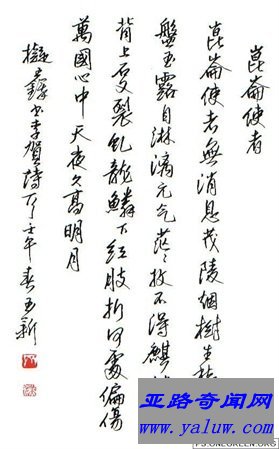 崑崙使者
崑崙使者無消息茂陵烟樹生
盤玉露自淋漓元气茫茫收不得麒
背上石文裂虬龍鱗下红肢折何處偏傷
萬國心中天夜久高明月
书李賀诗 壬午春
亚路奇闻网
www.yaluw.com
PS.ONEGREEN.ORG